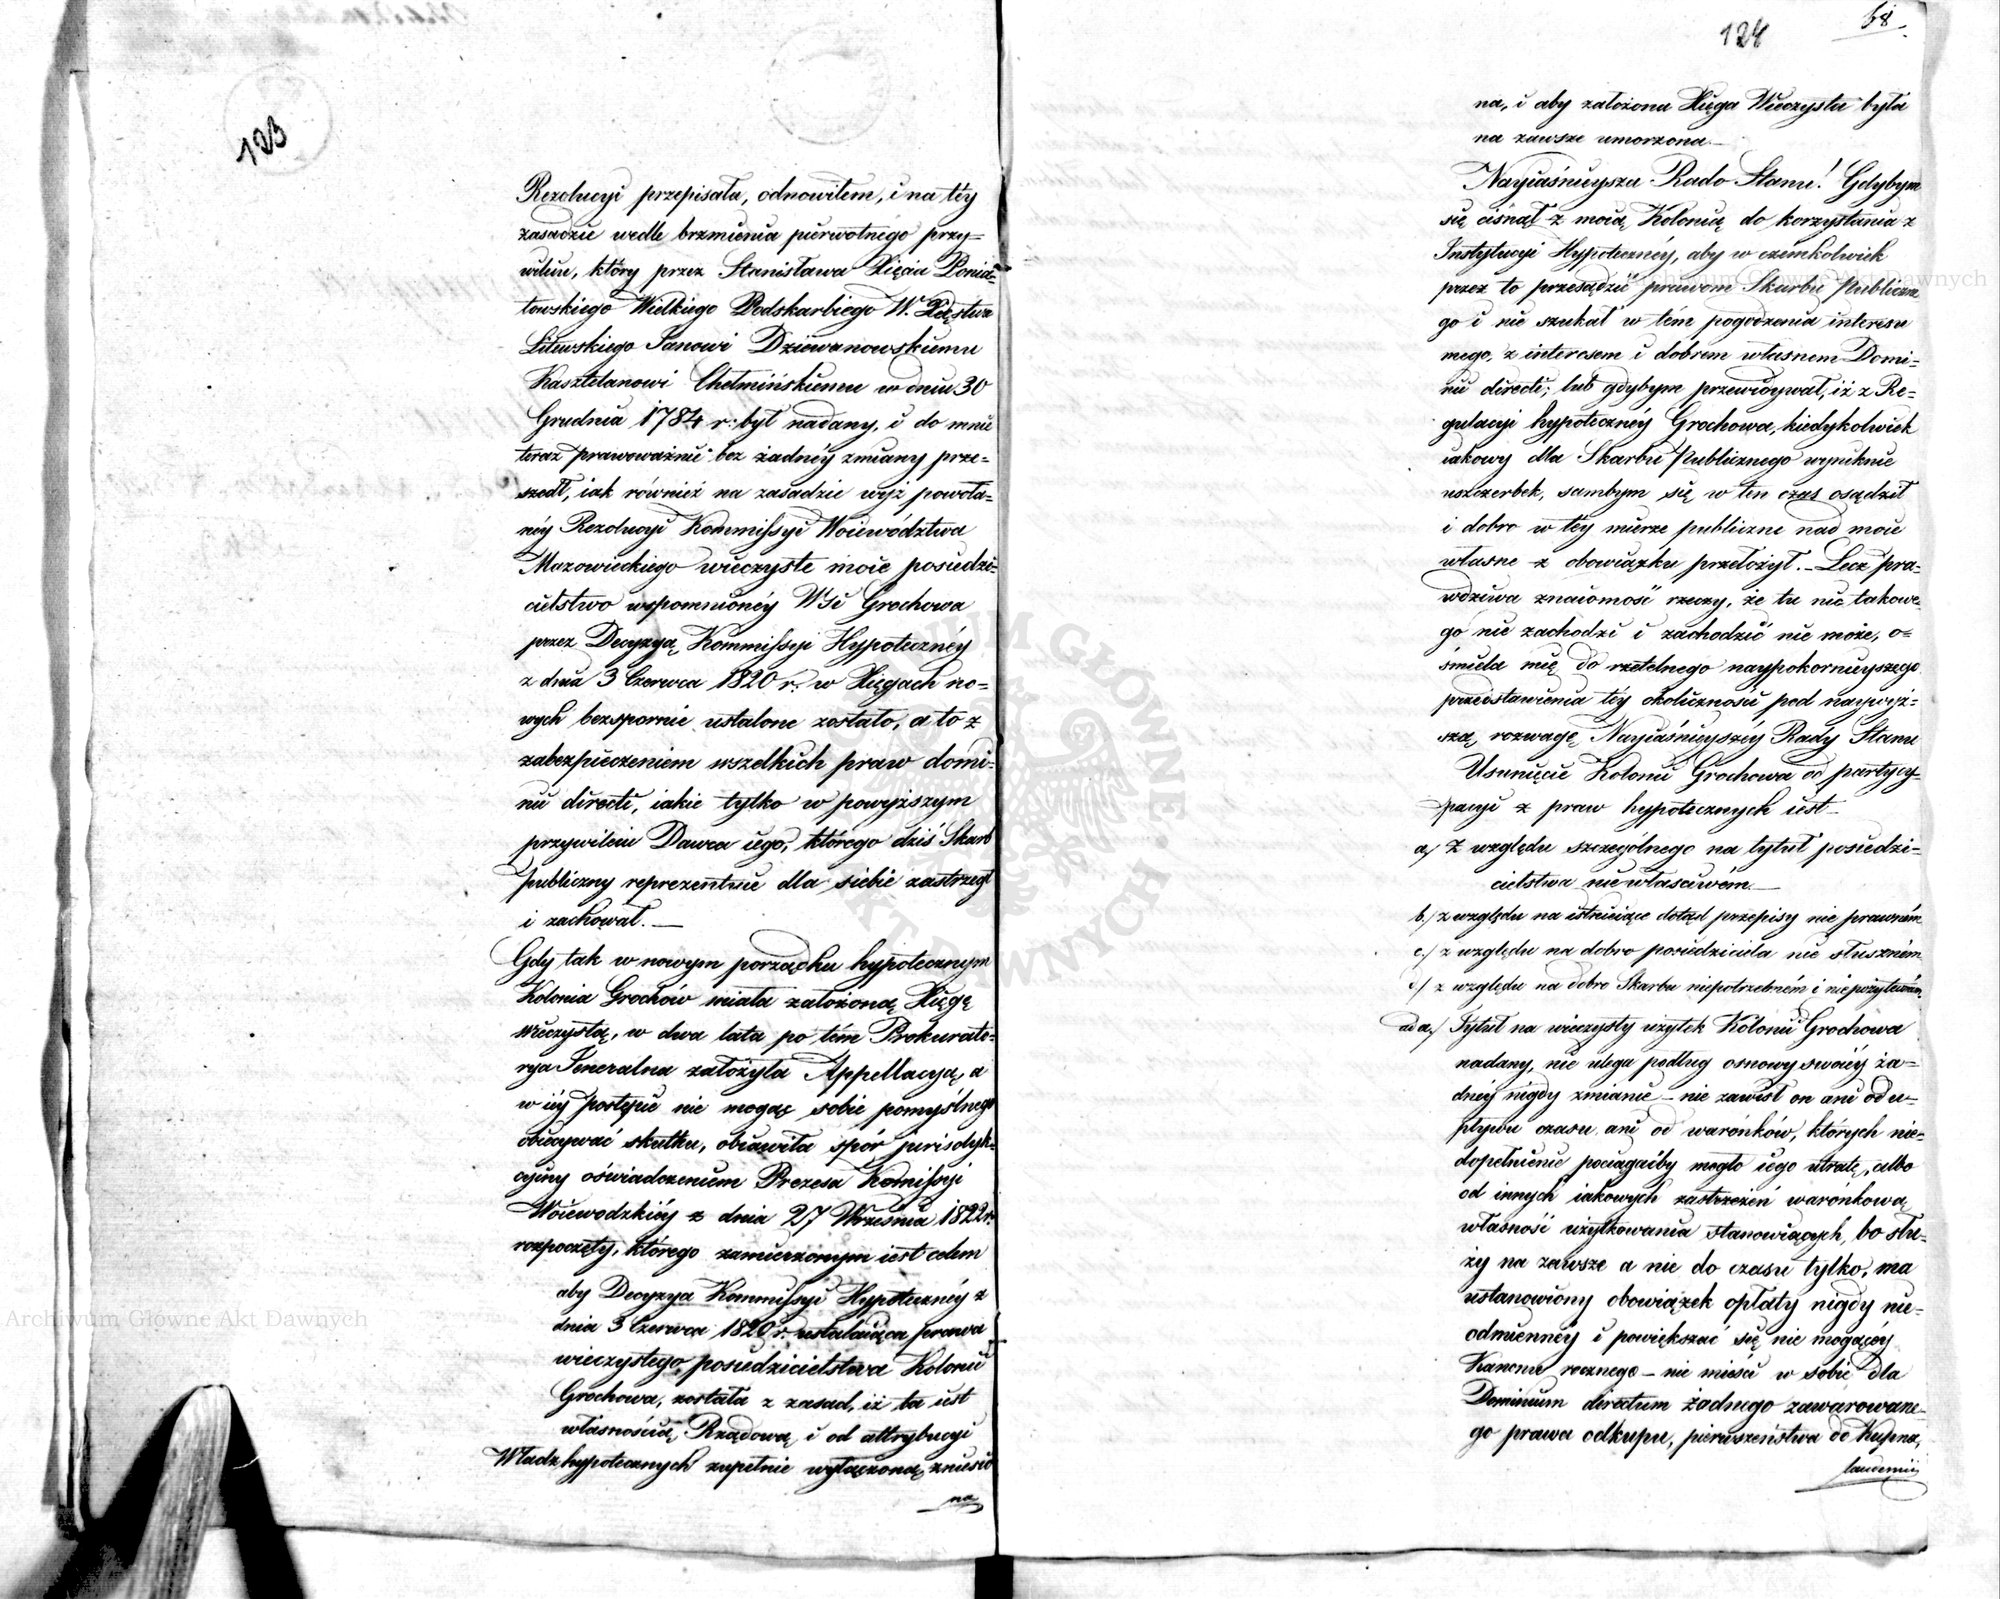 123
Rezolucyi przepisała, odnowiłem, i na téy
zasadzie wedle brzmienia pierwotnégo przy=
wileiu, który przez Stanisława Xięcia Ponia=
towskiégo Wielkiego Podskarbiego W. Xięstwa
Litewskiego Janowi Dziewanowskiemu
Kasztelanowi Chełmińskiemu w dniu 30
Grudnia 1784 r: był nadany, i do mnie
teraz prawoważnie bez żadnéy zmiany prze=
szedł, iak również na zasadzie wyż powoła=
néy Rezolucyi Kommissyi Woiewództwa
Mazowieckiego wieczyste moie posiedzi=
cielstwo wspomnionéy Wsi Grochowa
przez Decyzyą Kommissyi Hypotecznéy
z dnia 3 Czerwca 1820 r: w Xięgach no=
wych bezspornie ustalone zostało, a to z
zabezpieczeniem wszelkich praw domi=
nii directi, iakie tylko w powyższym
przywileiu Dawca iego, którego dziś Skarb
publiczny reprezentuie dla siebie zastrzegł
i zachował. —
Gdy tak w nowym porządku hypotecznym
Kolonia Grochów miała założoną Xięgę
wieczystą, w dwa lata po tém Prokurato=
rya Jeneralna założyła Appellacyą, a
w iéy postępie nie mogąc sobie pomyślnego
obiecywać skutku, obiawiła spór jurisdyk=
cyiny oświadczeniem Prezesa Komissyi
Woiewodzkiéy z dnia 27 Września 1822 r.
rozpoczęty, którego zamierzonym iest celem
aby Decyzya Kommissyi Hypotecznéy z
dnia 3 Czerwca 1820 r: ustalaiąca prawa
wieczystego posiedzicielstwa Kolonii
Grochowa, została z zasad, iż ta iest
własnością Rządową i od attrybucyi
Władz hypotecznych zupełnie wyłączoną, zniesio
na
68
124
na, i aby założona Xięga Wieczysta była
na zawsze umorzona —
Nayiaśnieysza Rado Stanu! Gdybym
się cisnął z moią Kolonią do korzystania z
Instytucyi Hypotecznéy, aby w czemkolwiek
przez to przesądzić prawom Skarbu Publiczne
go i nie szukał w tém pogodzenia interesu
mego, z interesem i dobrem własnem Domi=
nii directi; lub gdybym przewidywał, iż z Re=
gulacyi hypotecznéy Grochowa, kiedykolwiek
iakowy dla Skarbu Publicznego wyniknie
uszczerbek, sambym się w ten czas osądził
i dobro w téy mierze publiczne nad moie
własne z obowiązku przełożył. — Lecz pra=
wdziwa znaiomość rzeczy, że tu nic takowe=
go nie zachodzi i zachodzić nie może, o=
śmiela mię do rzetelnego naypokornieyszego
przedstawienia téy okoliczności pod naywyż=
szą rozwagę Nayiaśnieyszéy Rady Stanu
Usunięcie Kolonii Grochowa od partycy=
pacyi z praw hypotecznych iest —
a/ Z względu szczególnego na tytuł posiedzi=
cielstwa niewłaściwém —
b/ z względu na istnieiące dotąd przepisy nie prawném
c/ z względu na dobro posiedziciela nie słuszném
d/ z względu na dobro Skarbu niepotrzebném i niepożyteczném
ad a/ Tytuł na wieczysty użytek Kolonii Grochowa
nadany, nie ulega podług osnowy swoiéy ża=
dnéy nigdy zmianie — nie zawisł on ani od u=
pływu czasu ani od warónków, których nie=
dopełnienie pociągaćby mogło iego utratę, albo
od innych iakowych zastrzeżeń warónkową
własność użytkowania stanowiących, bo słu=
ży na zawsze a nie do czasu tylko, ma
ustanowiony obowiązek opłaty nigdy nie=
odmiennéy i powiększać się nie mogącéy
Kanonu rocznego — nie mieści w sobie dla
Dominium directum żadnego zawarowane=
go prawa odkupu, pierwszeństwa do Kupna,
laudemii
Archiwum Główne Akt Dawnych
Archiwum Główne Akt Dawnych